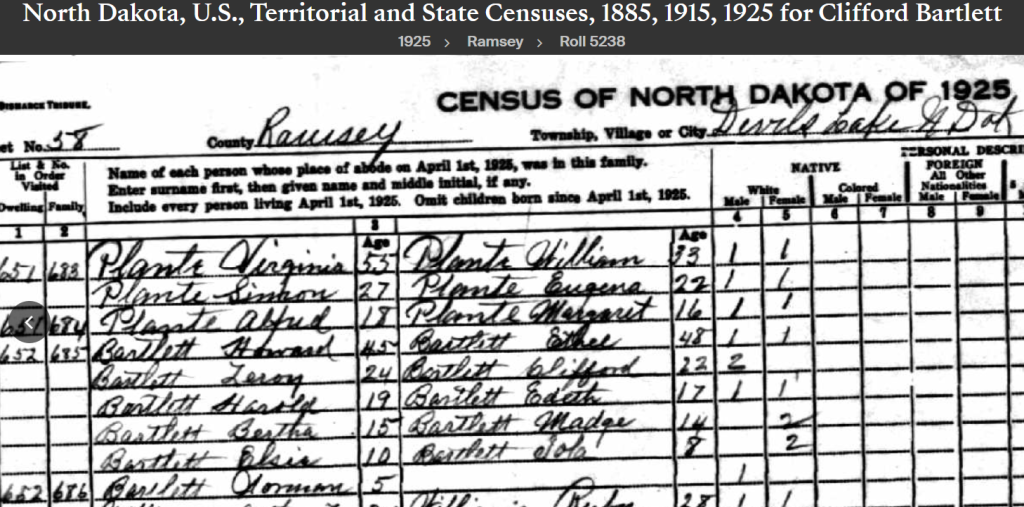 North Dakota, U.S., Territorial and State Censuses, 1885, 1915, 1925 for Clifford Bartlett
1925 > Ramsey > Roll 5238
BISMARCK TRIBUNE.
CENSUS OF NORTH DAKOTA OF 1925
et No. 58 County Ramsey Township, Village or City Devils Lake N Dak
List & No. in Order Visited
Name of each person whose place of abode on April 1st, 1925, was in this family.
Enter surname first, then given name and middle initial, if any.
Include every person living April 1st, 1925. Omit children born since April 1st, 1925.
PERSONAL DESCRI
NATIVE
FOREIGN
All Other
Nationalities
White Colored
Dwelling Family Male Female Male Female Male Female
1 2 3 4 5 6 7 8 9
Age Age
651 683 Plante Virginia 55 Plante William 33 1 1
Plante Simon 27 Plante Eugena 22 1 1
684 Plante Alfred 18 Plante Margaret 16 1 1
652 685 Bartlett Howard 45 Bartlett Ethel 48 1 1
Bartlett Leroy 24 Bartlett Clifford 22 2
Bartlett Harold 19 Bartlett Edeth 17 1 1
Bartlett Bertha 15 Bartlett Madge 14 2
Bartlett Elsie 10 Bartlett Iola 8 2
652 686 Bartlett Norman 5 1
Ruby 28 1 1